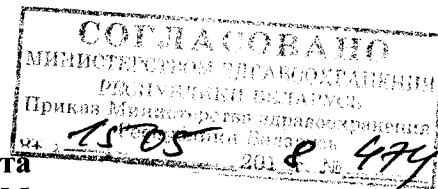 СОГЛАСОВАНО
МИНИСТЕРСТВОМ ЗДРАВООХРАНЕНИЯ
РЕСПУБЛИКИ БЕЛАРУСЬ
Приказ Министерства здравоохранения
Республики Беларусь
15 05 2018 № 474
та